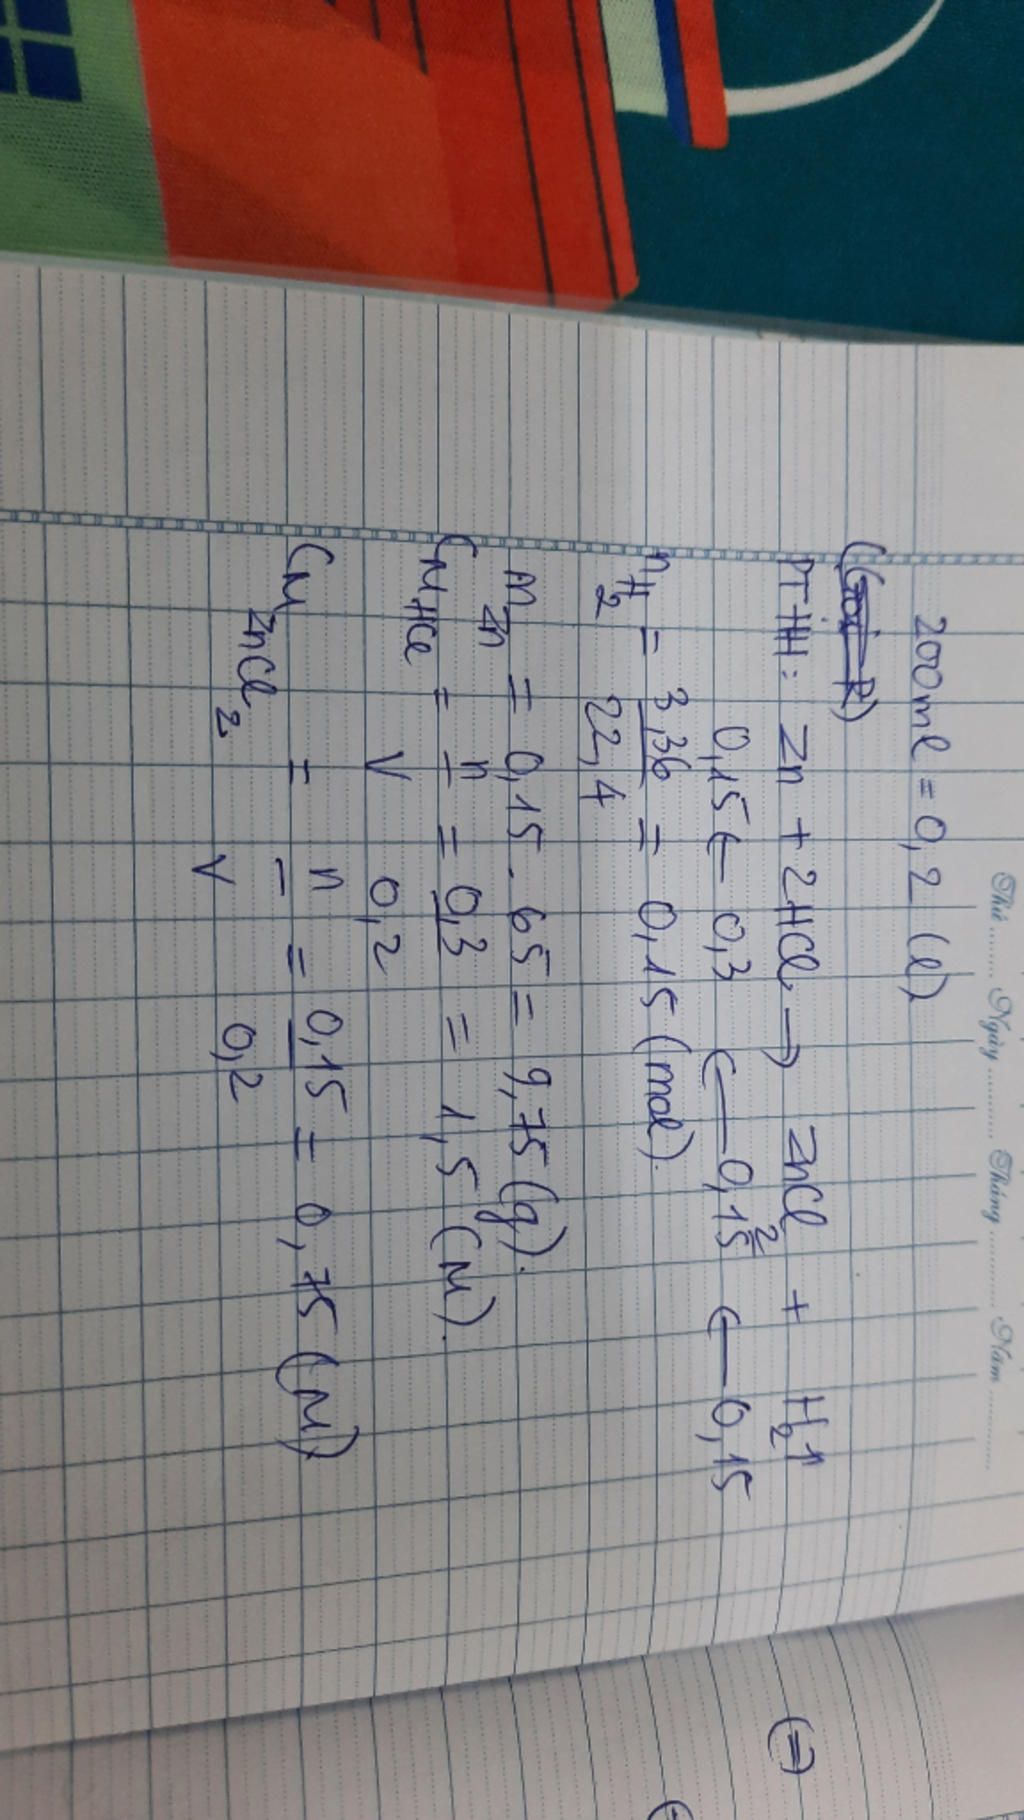 Thứ ........ Ngày ........ Tháng ........ Năm ........
200ml = 0,2 (l)
PTHH: Zn + 2HCl → ZnCl2 + H2↑
0,15 ← 0,3 ← 0,15 ← 0,15
nH2 = 3,36 / 22,4 = 0,15 (mol).
mZn = 0,15 . 65 = 9,75 (g).
CMHCl = n / V = 0,3 / 0,2 = 1,5 (M).
CMZnCl2 = n / V = 0,15 / 0,2 = 0,75 (M)
(=)